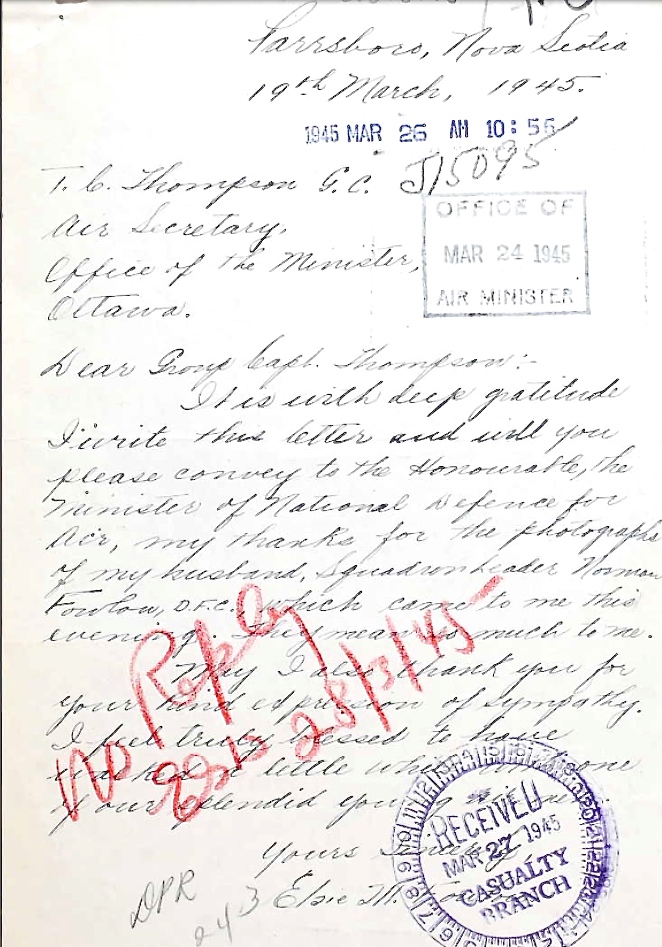 Parrsboro, Nova Scotia
19th March, 1945.
1945 MAR 26 AM 10:56
J15095
T. C. Thompson G.C.
Air Secretary.
Office of the Minister,
Ottawa.
OFFICE OF
MAR 24 1945
AIR MINISTER
Dear Group Capt. Thompson:-
It is with deep gratitude
I write this letter and will you
please convey to the Honourable, the
Minister of National Defence for
Air, my thanks for the photographs
of my husband, Squadron Leader Norman
Fowlow, D.F.C. which came to me this
evening. They mean so much to me.
May I also thank you for
your kind expression of sympathy.
I feel truly blessed to have
a little while one
of our splendid young
Yours Sincerely
Elsie M.
No Reply
28/3/45
RECEIVED
MAR 27 1945
CASUALTY
BRANCH
DPR
243